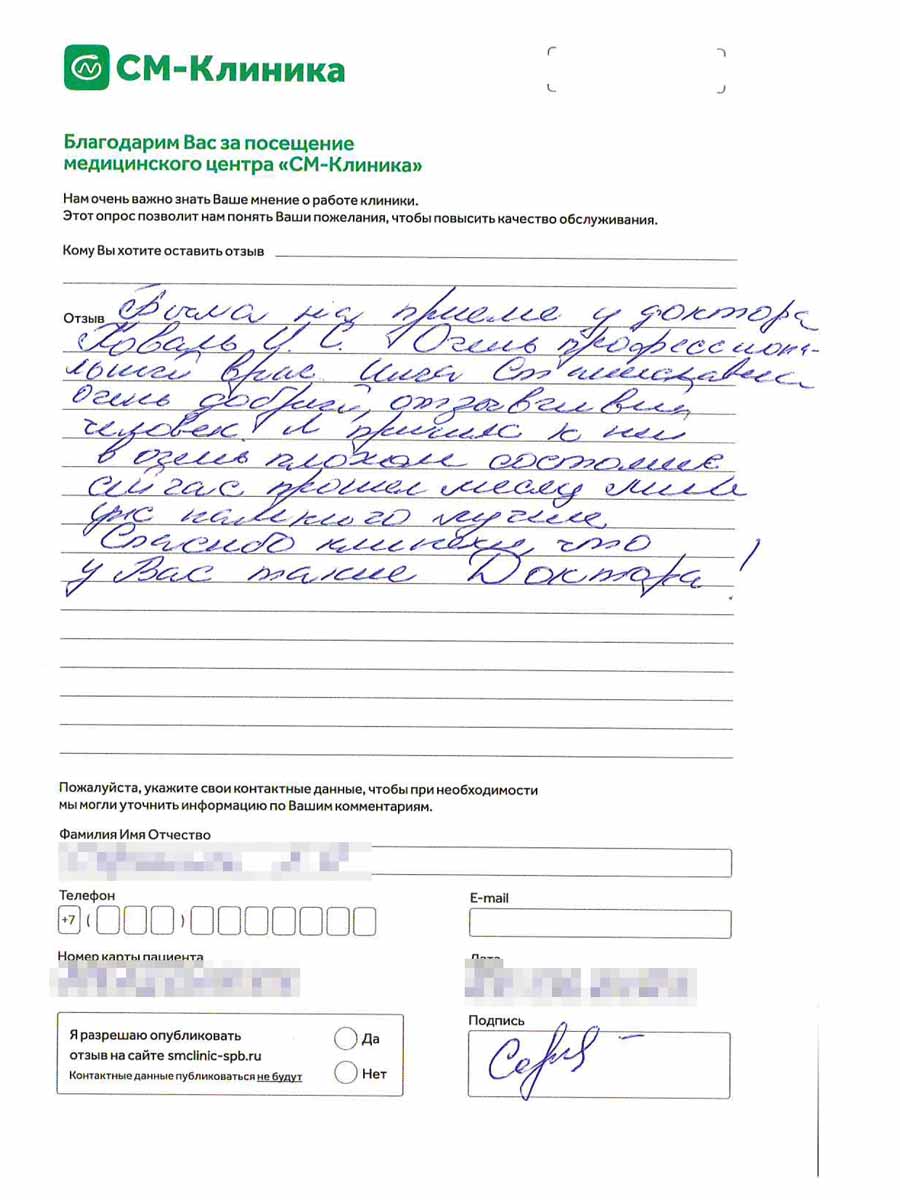 СМ-Клиника
Благодарим Вас за посещение
медицинского центра «СМ-Клиника»
Нам очень важно знать Ваше мнение о работе клиники.
Этот опрос позволит нам понять Ваши пожелания, чтобы повысить качество обслуживания.
Кому Вы хотите оставить отзыв
Отзыв Была на приеме у доктора
Коваль И. С. Очень профессиона-
льный врач. Инга Станиславовна
очень добрый, отзывчивый
человек. Я пришла к ней
в очень плохом состоянии
сейчас прошел месяц мне
уже намного лучше.
Спасибо клинике, что
у Вас такие Доктора!
Пожалуйста, укажите свои контактные данные, чтобы при необходимости
мы могли уточнить информацию по Вашим комментариям.
Фамилия Имя Отчество
Телефон
E-mail
+7 ( )
Номер карты пациента
Дата
Я разрешаю опубликовать
отзыв на сайте smclinic-spb.ru
Контактные данные публиковаться не будут
Да
Нет
Подпись